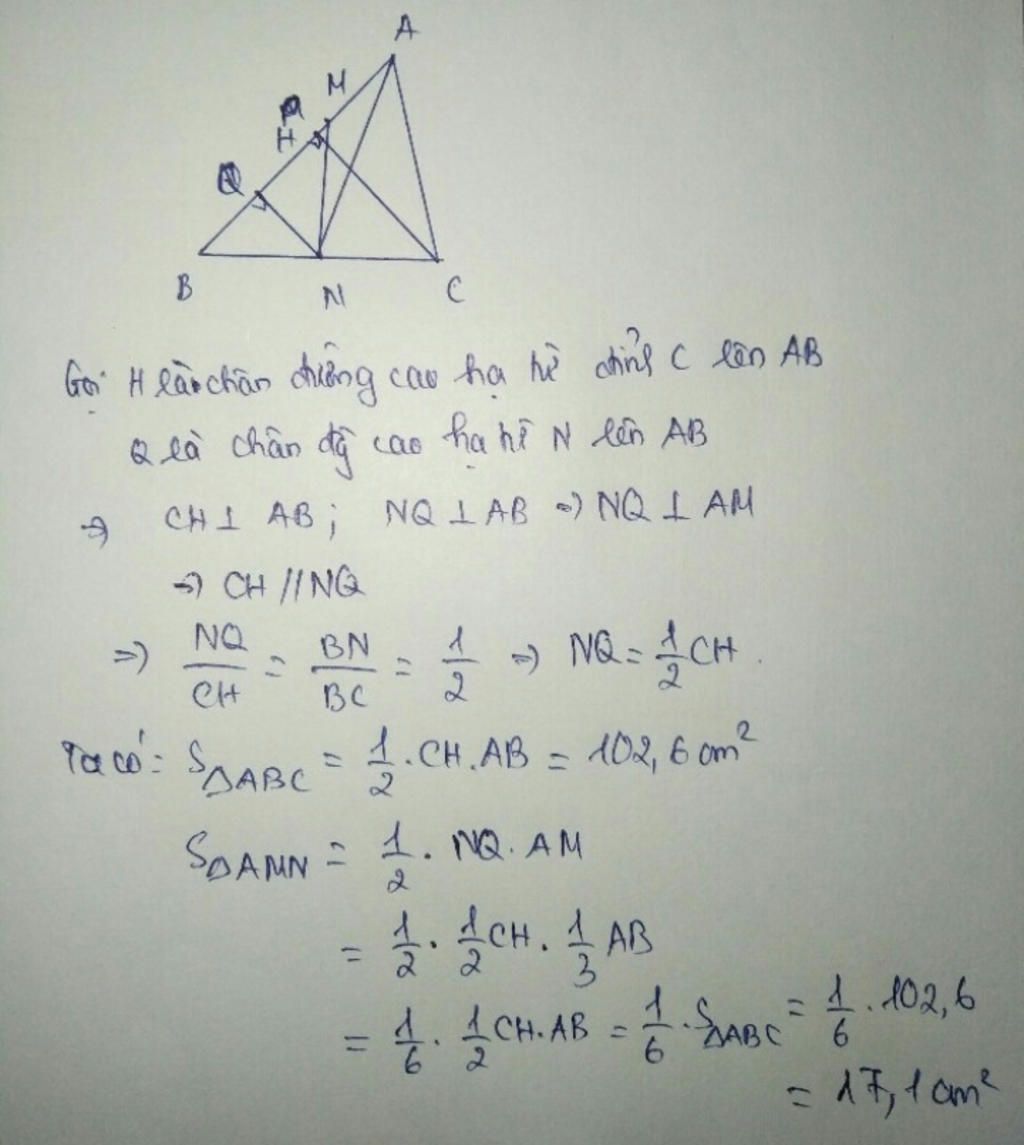 A
M
H
Q
B
N
C
Gọi H là chân đường cao hạ từ đỉnh C lên AB
Q là chân đg cao hạ từ N lên AB
=> CH ⊥ AB ; NQ ⊥ AB => NQ ⊥ AM
=> CH // NQ
=> NQ/CH = BN/BC = 1/2 => NQ = 1/2 CH.
Ta có: S△ABC = 1/2 . CH . AB = 102,6 cm²
S△AMN = 1/2 . NQ . AM
= 1/2 . 1/2 CH . 1/3 AB
= 1/6 . 1/2 CH . AB = 1/6 . S△ABC = 1/6 . 102,6
= 17,1 cm²